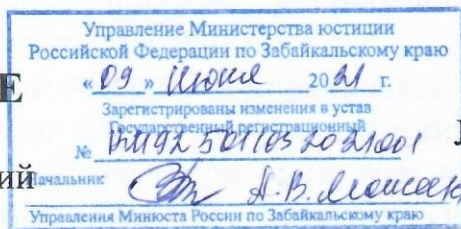 Управление Министерства юстиции
Российской Федерации по Забайкальскому краю
Е
« 09 » июня 2021 г.
Зарегистрированы изменения в устав
Государственный регистрационный
№ RU925011032021001
ий
Начальник А.В.
Управления Минюста России по Забайкальскому краю